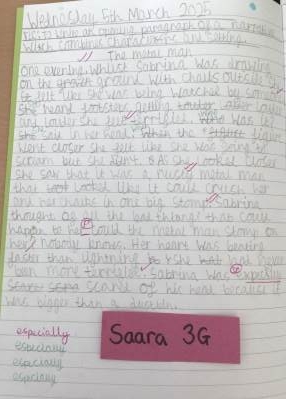 Wednesday 5th March 2025
to write an opening paragraph of a narrative
which combines characters and setting.
The metal man
One evening, whilst Sabrina was drawing
on the ground with chalks outside
felt like she was being watched by som
she heard footsteps getting louder after louder
and louder she felt terrified. Who was it?
she said in her head. When the figure
went closer she felt like she was going to
scream but she didn't. As she looked closer
she saw that it was a huge metal man
that looked like it could crush her
and her chalks in one big stomp. Sabrina
thought of all the bad things that could
happen to her. Could the metal man stomp on
her? nobody knows. Her heart was beating
faster than lightning she had never
been more terrified. Sabrina was expically
scared of his head because it
was bigger than a
especially
especially
especially
especially
Saara 3G